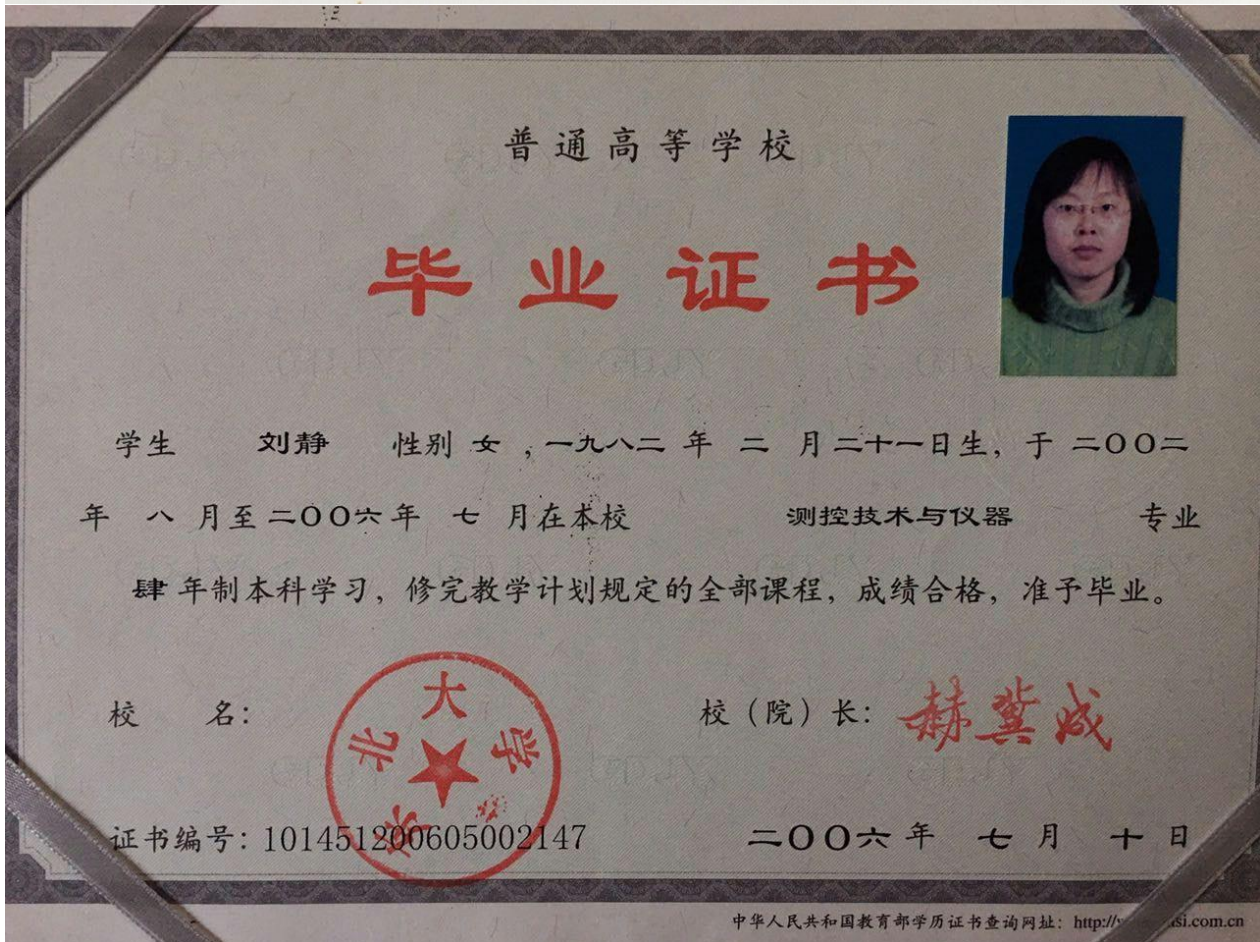 普通高等学校
毕业证书
学生 刘静 性别 女 ,一九八二 年 二 月二十一日生, 于 二OO二
年 八 月至二OO六年 七 月在本校 测控技术与仪器 专业
肆 年制本科学习, 修完教学计划规定的全部课程, 成绩合格, 准予毕业。
校 名:
东北大学
校（院）长: 赫冀成
证书编号: 101451200605002147
二OO六 年 七 月 十 日
中华人民共和国教育部学历证书查询网址: http://